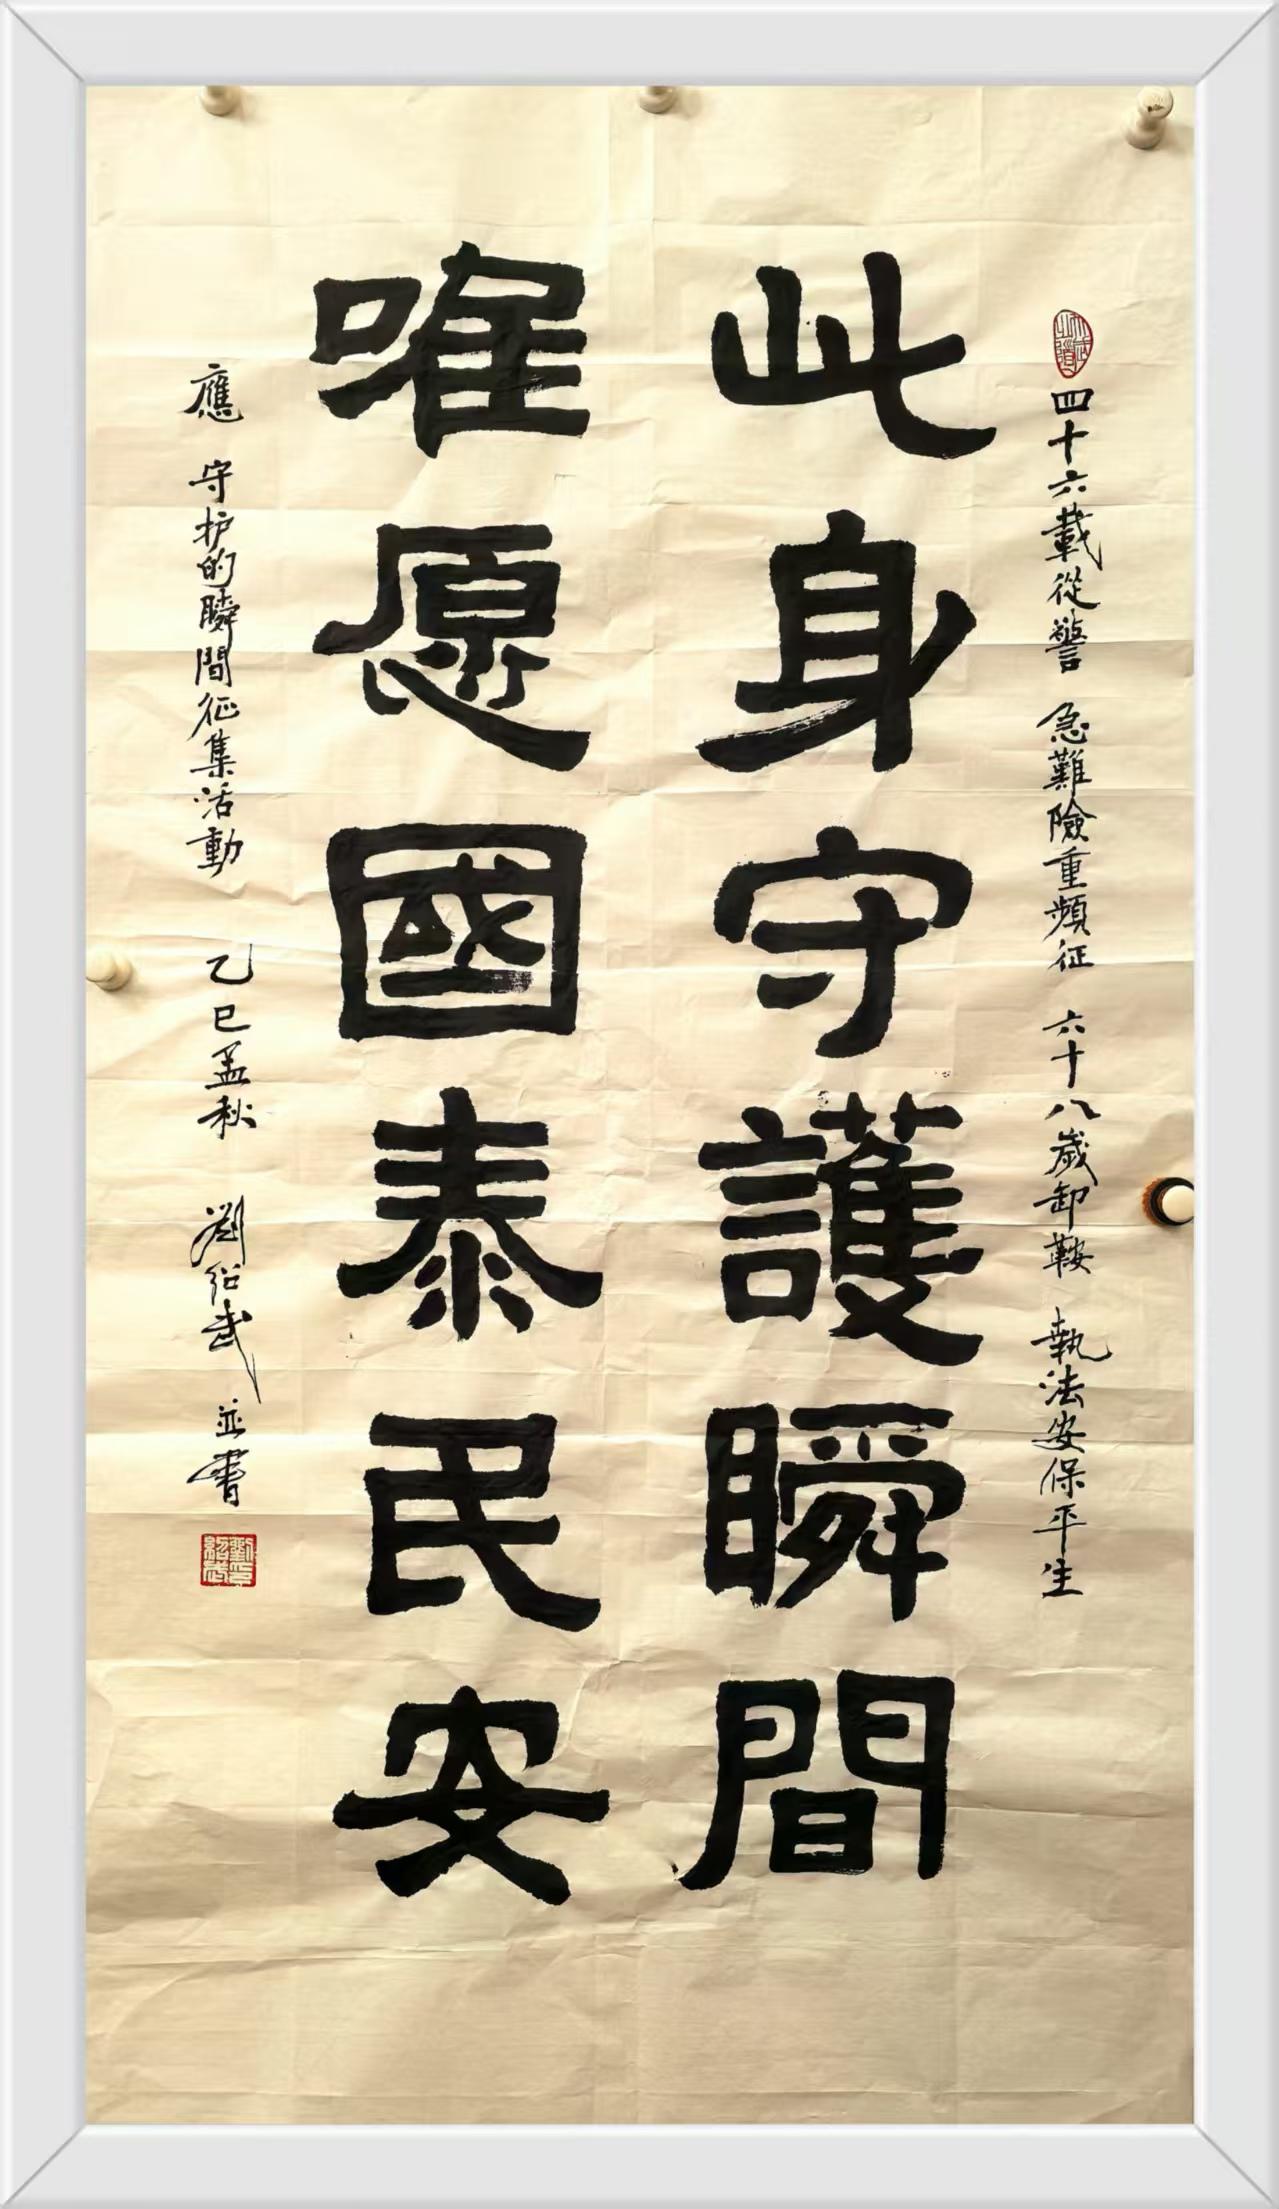 四十六載從警 急難險重頻征 六十八歲卸鞍 執法安保平生
此身守護瞬間
唯愿國泰民安
應 守护的瞬間征集活動 乙巳孟秋 劉紹武 並書
劉紹武